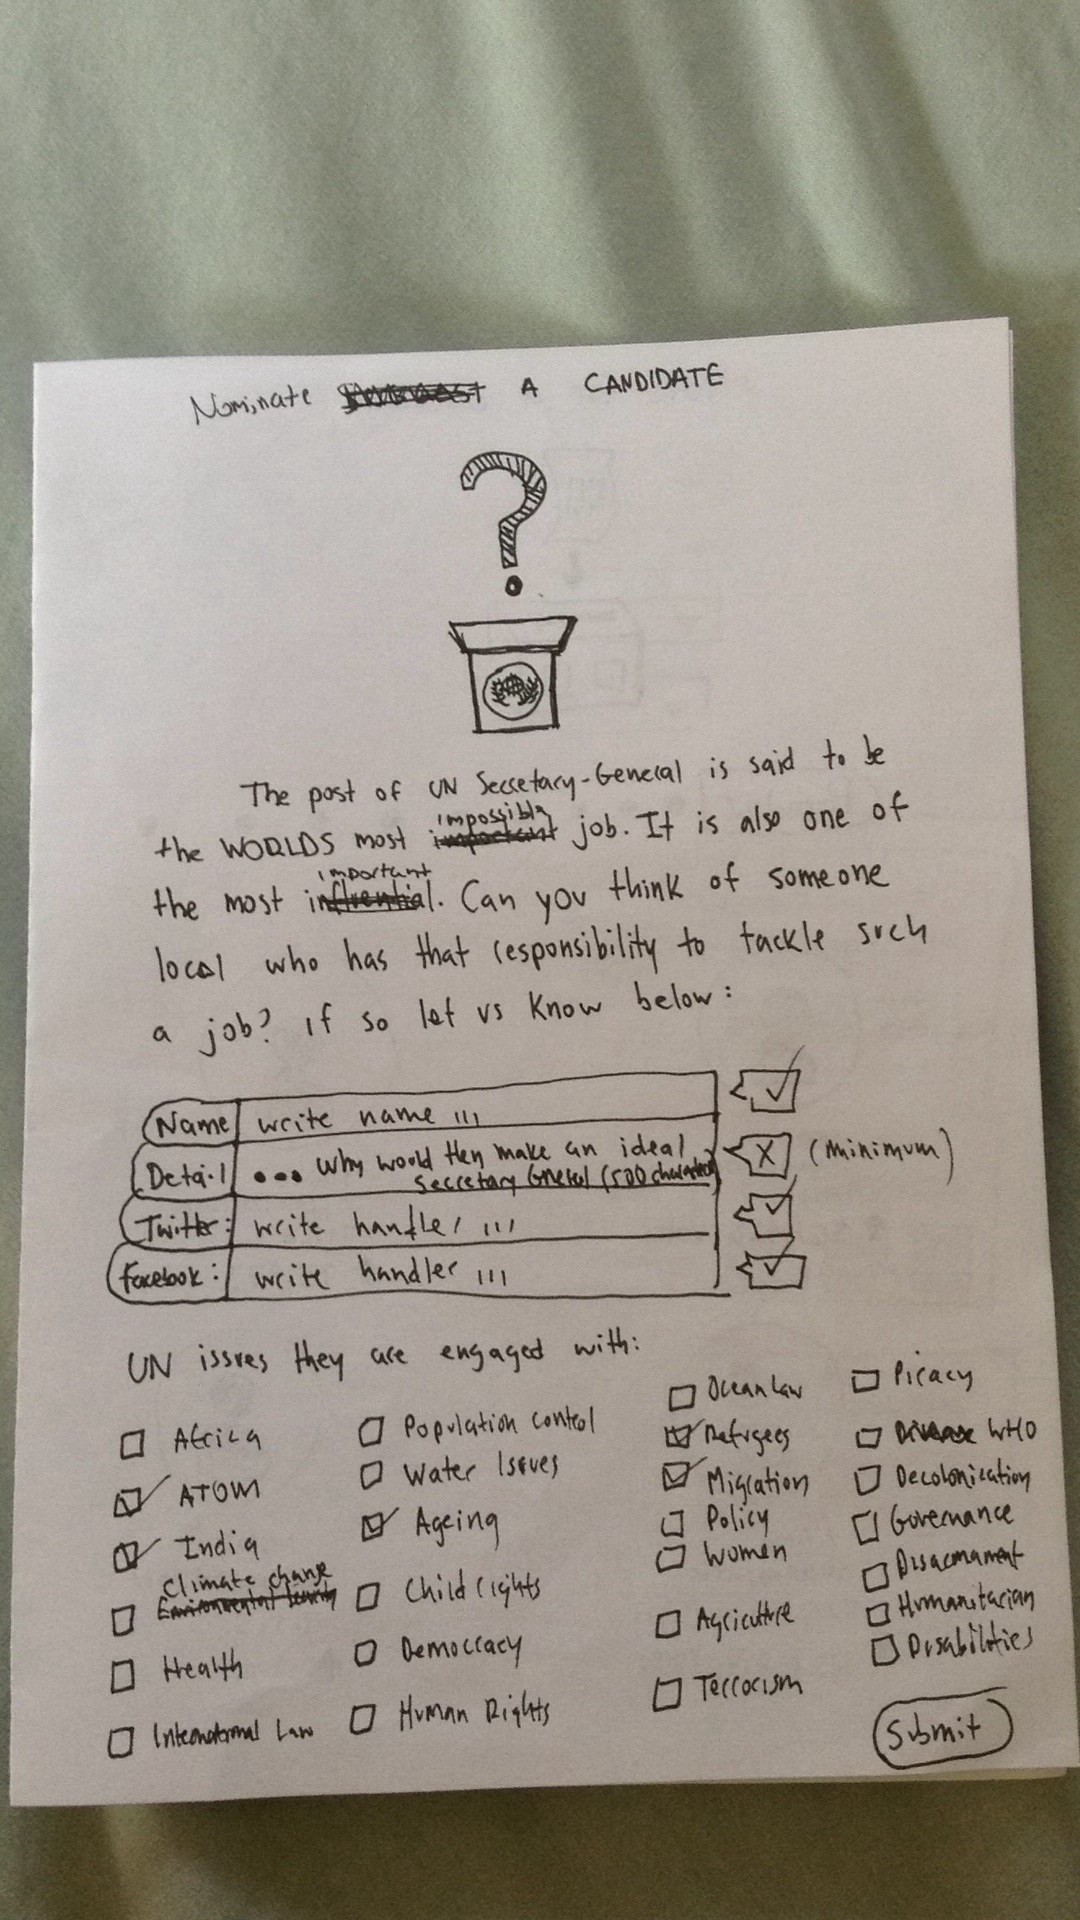 Nominate A CANDIDATE
?
The post of UN Secretary-General is said to be
the WORLDS most impossibly important job. It is also one of
the most important influential. Can you think of someone
local who has that responsibility to tackle such
a job? if so let us know below:
Name write name
Detail ... why would they make an ideal
secretary General (500 characters) X (minimum)
Twitter: write handler
Facebook: write handler
UN issues they are engaged with:
Africa
ATOM
India
Climate change
Environmental
Health
International Law
Population control
Water Issues
Ageing
Child rights
Democracy
Human Rights
Ocean law
Refugees
Migration
Policy
Women
Agriculture
Terrorism
Piracy
Disease WHO
Decolonication
Governance
Disarmament
Humanitarian
Disabilities
Submit